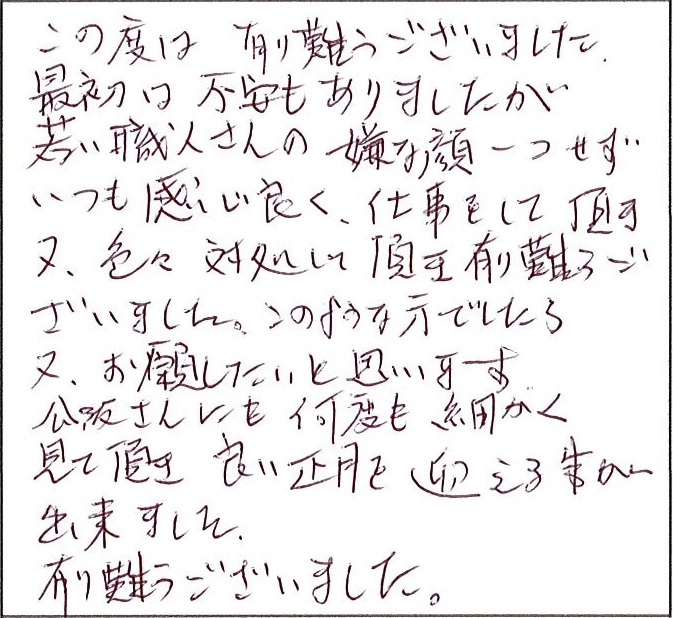 この度は 有り難うございました.
最初は 不安もありましたが
若い職人さんの 嫌な顔一つせず
いつも感じ良く、仕事をして 頂き
又、色々 対処して 頂き有り難うご
ざいました。このような方でしたら
又、お願したいと思います
さんにも 何度も 細かく
見て頂き 良い正月を 迎える事が
出来ました.
有り難うございました。